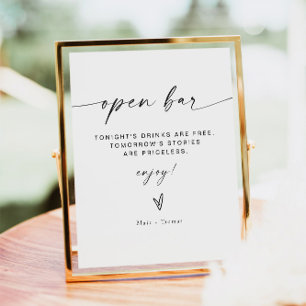 open bar
TONIGHT'S DRINKS ARE FREE.
TOMORROW'S STORIES
ARE PRICELESS.
enjoy!